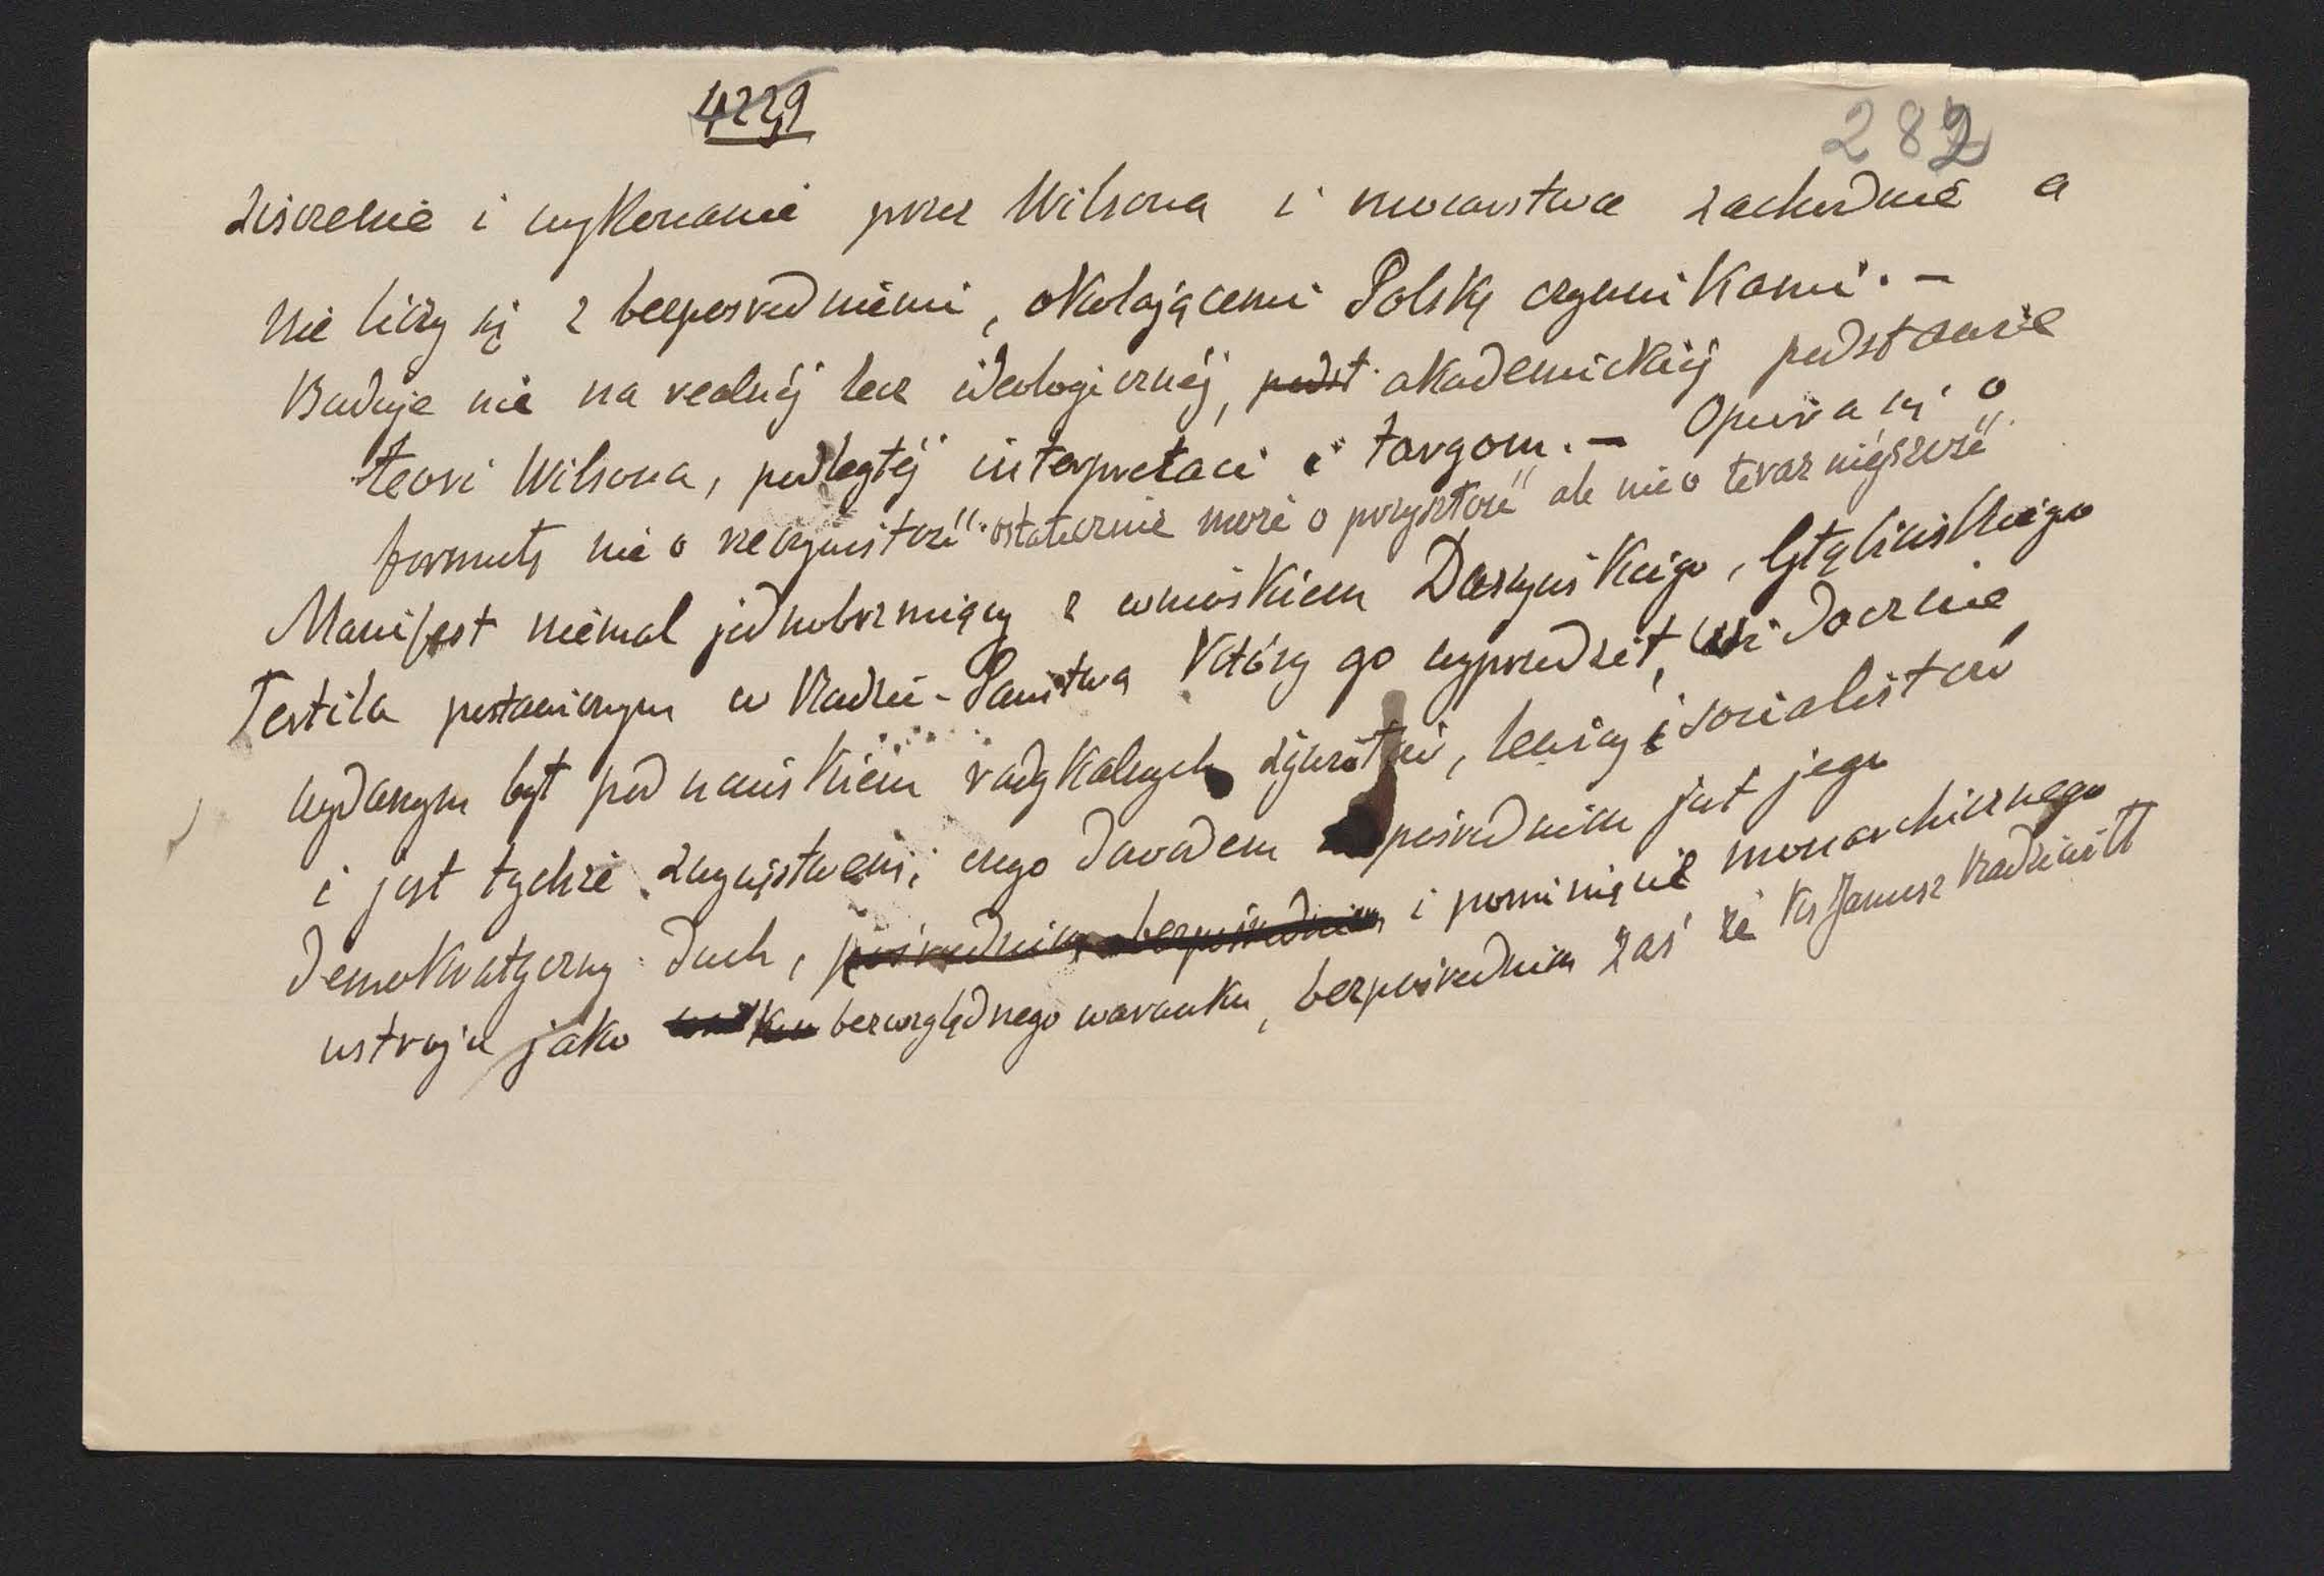 4229
282
ziszczenie i wykonanie przez Wilsona i mocarstwa zachodnie a
nie liczy się z bezpośredniemi, okalającemi Polskę czynnikami. –
Buduje nie na realnéj lecz ideologicznéj, podst. akademickiéj podstawie
teori Wilsona, podległéj interpretaci i targom. – Opiera się o
formułę nie o rzeczywistość ostatecznie może o przyszłość ale nie o teraźniejszość
Manifest niemal jednobrzmiący z wnioskiem Daszyńskiego, Głąbińskiego
Tertila postawionym w Radzie-Państwa który go wyprzedził, widocznie
wydanym był pod naciskiem radykalnych żywiołów, lewicy i socialistów
i jest tychże zwycięstwem; czego dowodem pośrednim jest jego
demokratyczny duch, pośrednim bezpośrednim i pominięcie monarchicznego
ustroju jako bezwzględnego warunku, bezpośrednim zaś że Ks Janusz Radziwiłł